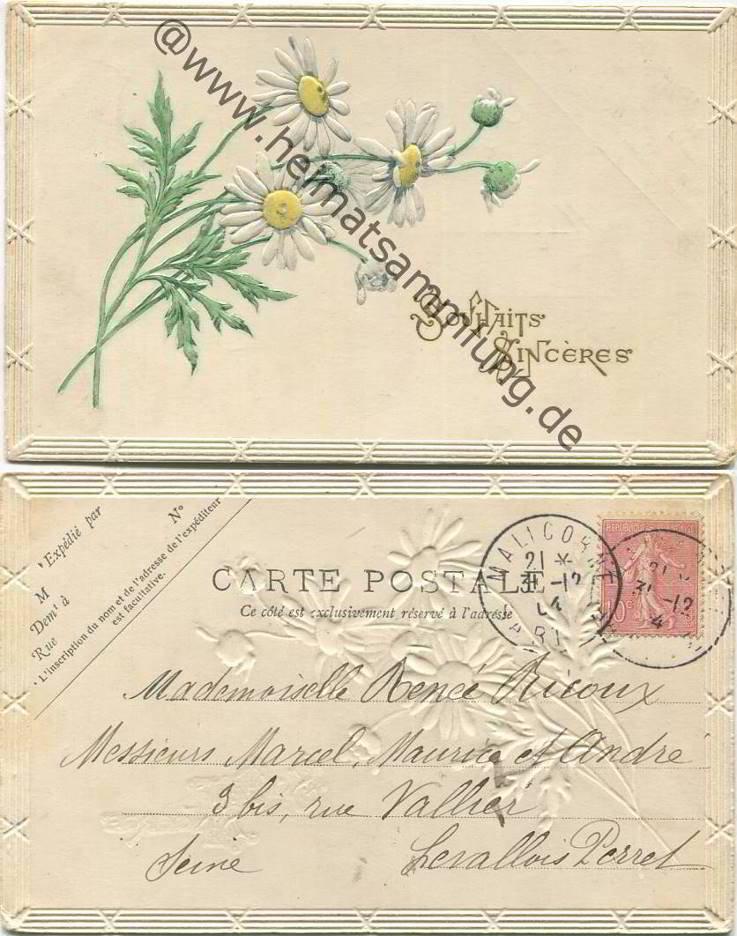 @www.heimatsammlung.de
Souhaits
Sincères
Expédié par
N°
M
Dem^t à
Rue
L'inscription du nom et de l'adresse de l'expéditeur
est facultative.
CARTE POSTALE
Ce côté est exclusivement réservé à l'adresse
MALICORNE
21 *
31 -12
04
SARTHE
REPUBLIQUE
10c
21
31 -12
Mademoiselle Renée Ricoux
Messieurs Marcel, Maurice et André
3 bis, rue Vallier
Seine Levallois Perret